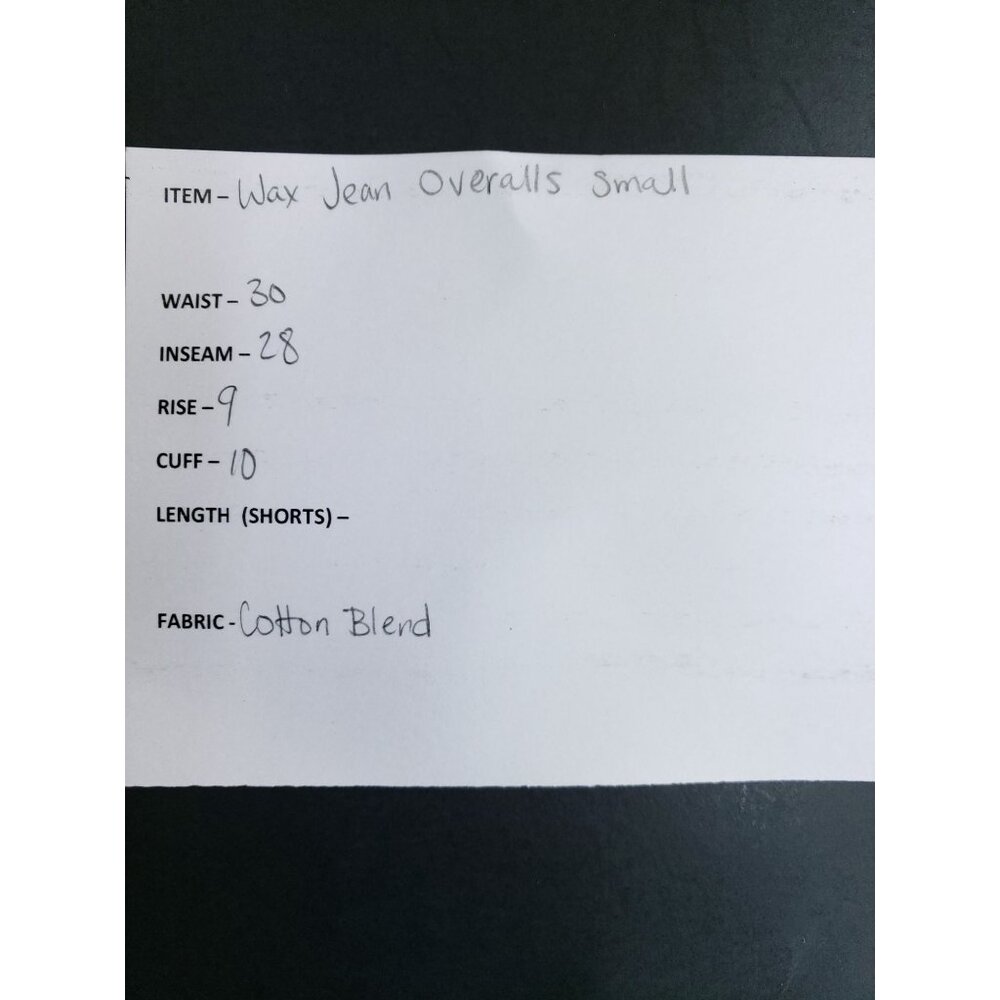 ITEM – Wax Jean Overalls Small
WAIST – 30
INSEAM – 28
RISE – 9
CUFF – 10
LENGTH (SHORTS) –
FABRIC - Cotton Blend